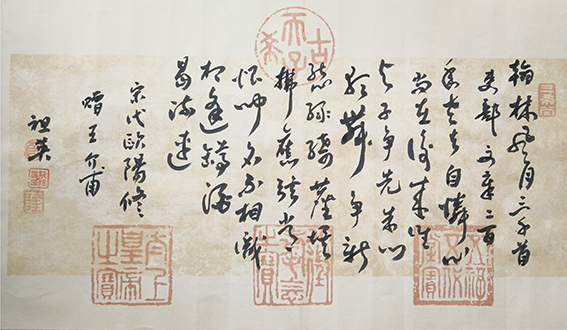 古希天子
翰林風月三千首
吏部文章二百
年老去自憐心
尚在後來誰
與子爭先朱門
歌舞爭新
態綠綺塵埃
拂舊弦常
恨聞名不相識
相逢罇酒
曷流連
宋代歐陽修
贈王介甫
祖英
太上皇帝之寶